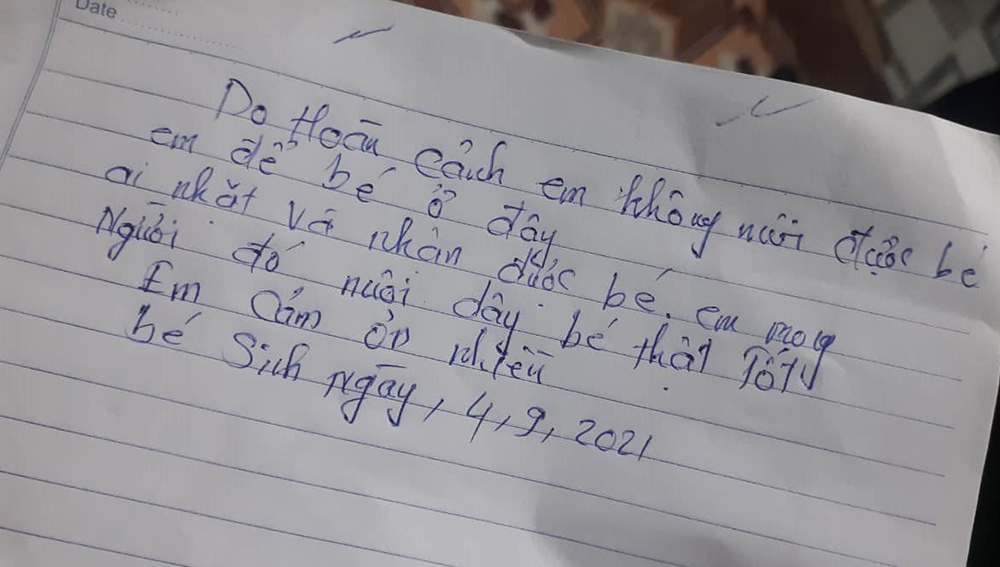 Date
Do Hoàn cảnh em không nuôi được bé
em để bé ở đây
ai nhặt và nhận được bé. em mong
Người đó nuôi dậy bé thật Tốt
Em Cảm ơn nhiều
bé Sinh ngày, 4, 9, 2021